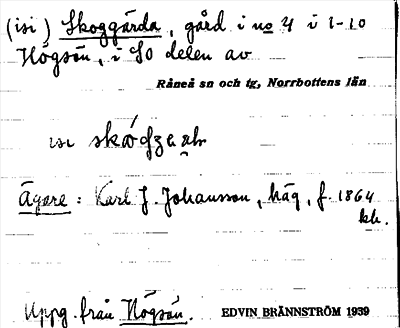 (isi) Skoggärda, gård i no 4 i 1-10
Högsön, i SO delen av
Råneå sn och tg, Norrbottens län
isi
Ägare: Karl J. Johansson, häg, f. 1864
Uppg. från Högsön. EDVIN BRÄNNSTRÖM 1939